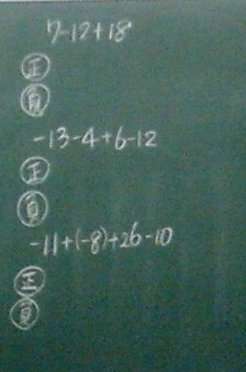 7-12+18
正
負
-13-4+6-12
正
負
-11+(-8)+26-10
正
負